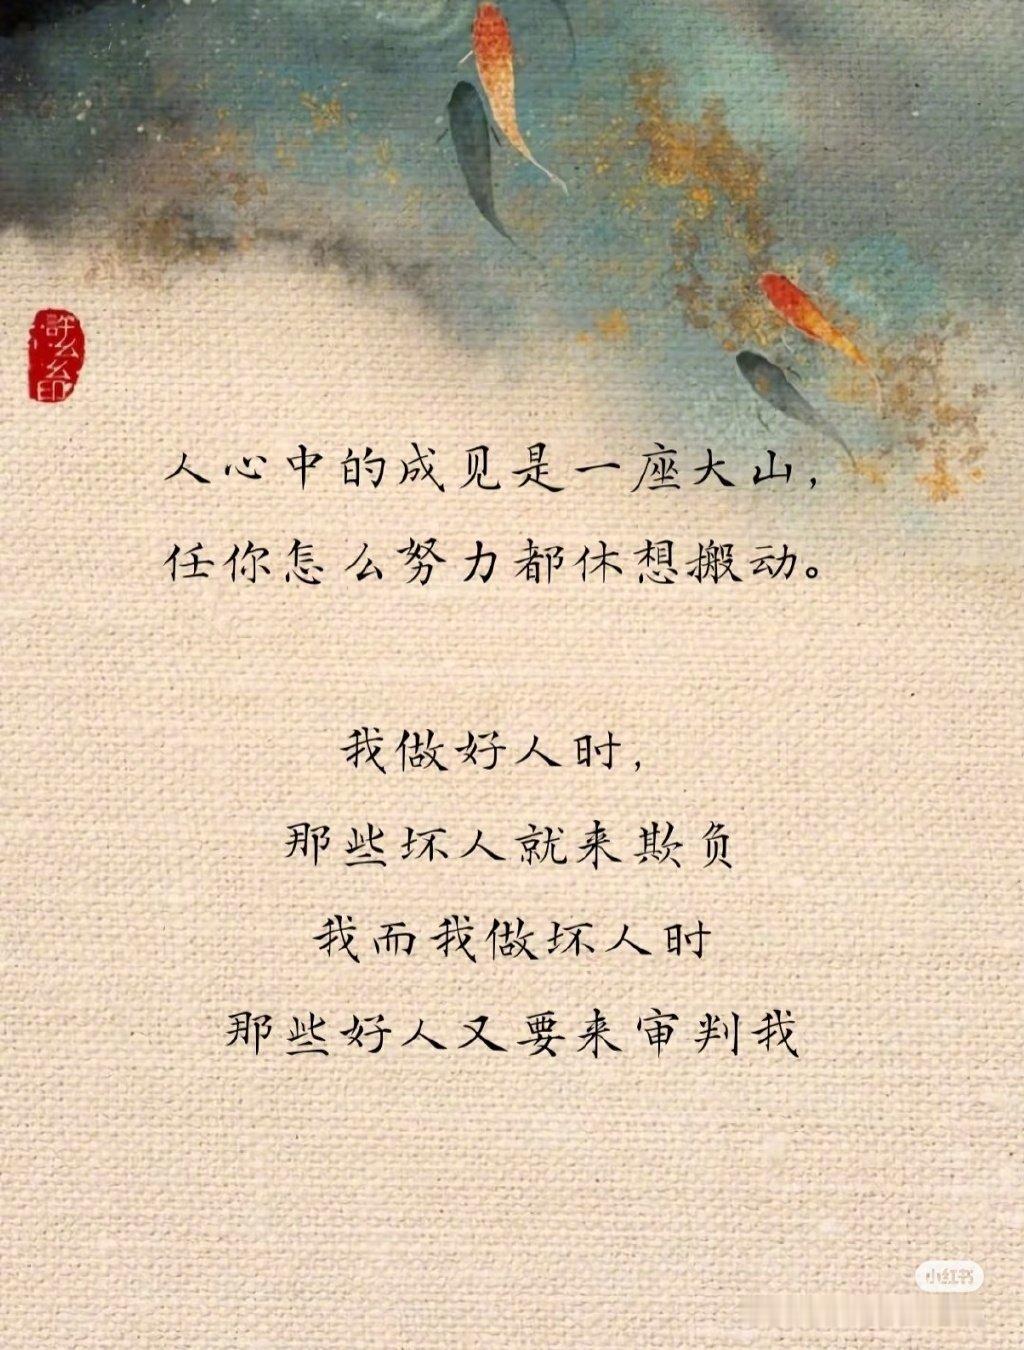 許幺幺印
人心中的成见是一座大山，
任你怎么努力都休想搬动。
我做好人时，
那些坏人就来欺负
我而我做坏人时
那些好人又要来审判我
小红书